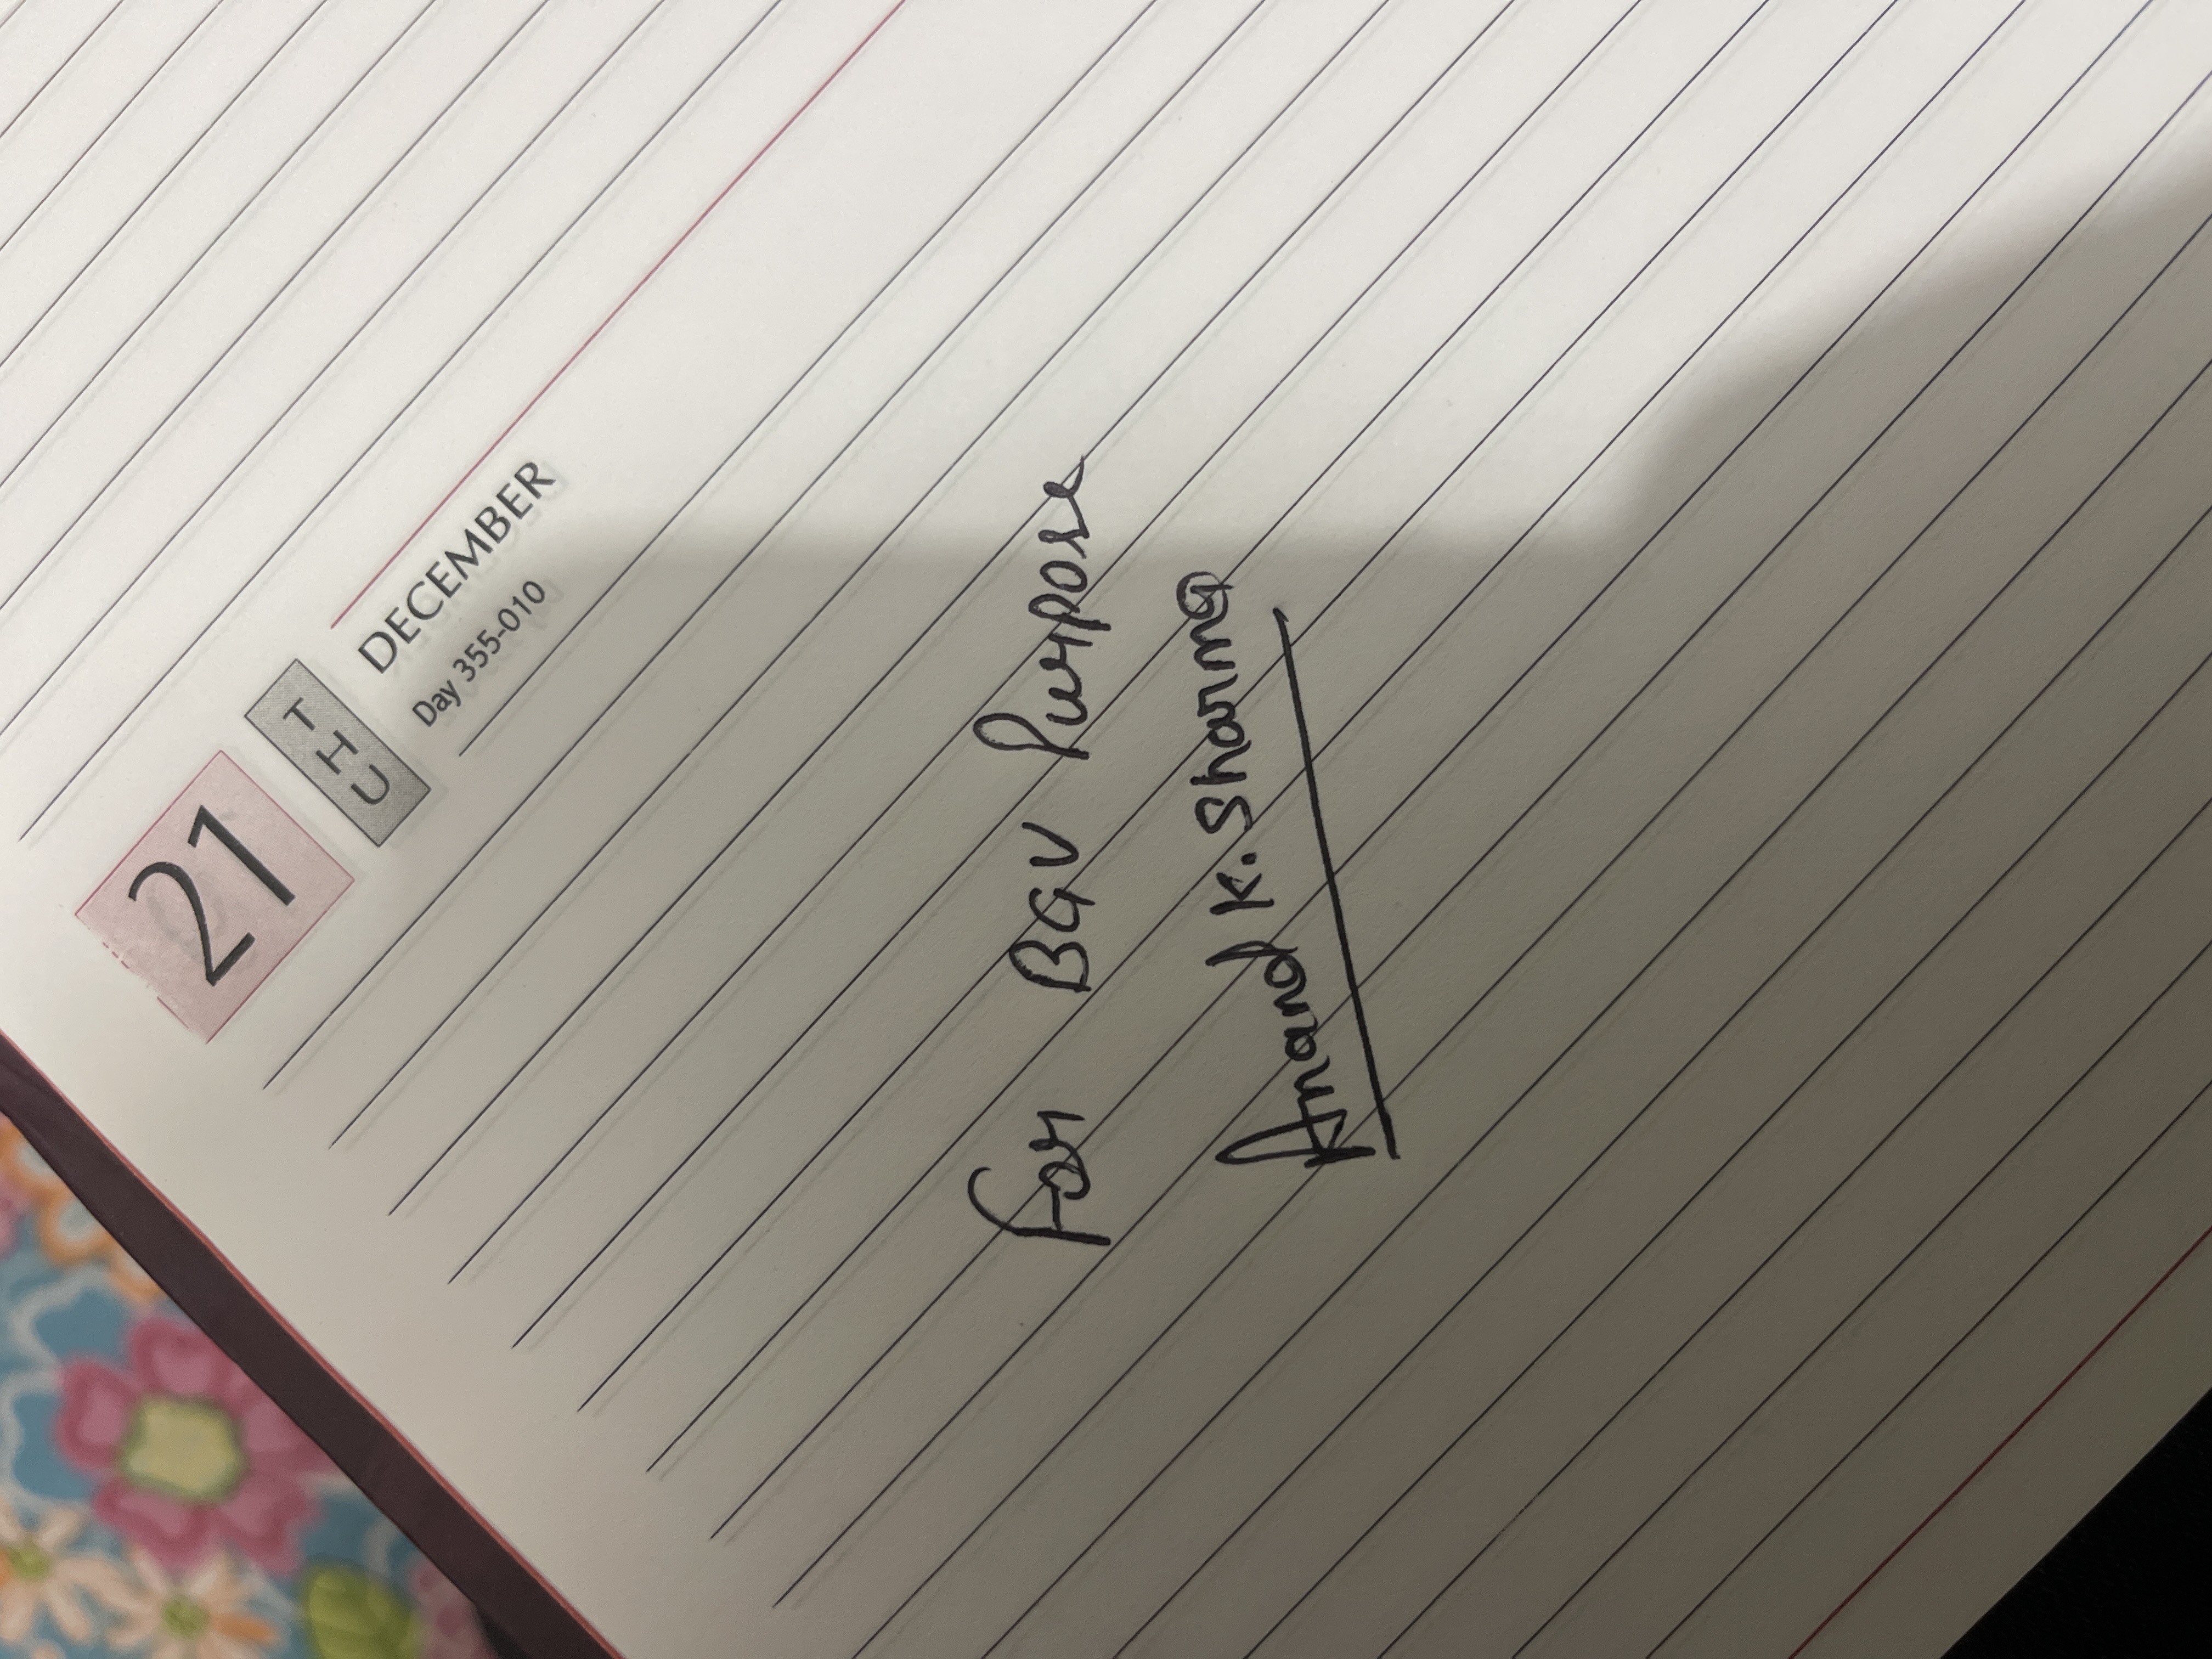 21
THU
DECEMBER
Day 355-010
For BGV Purpose
Anand K. Sharma